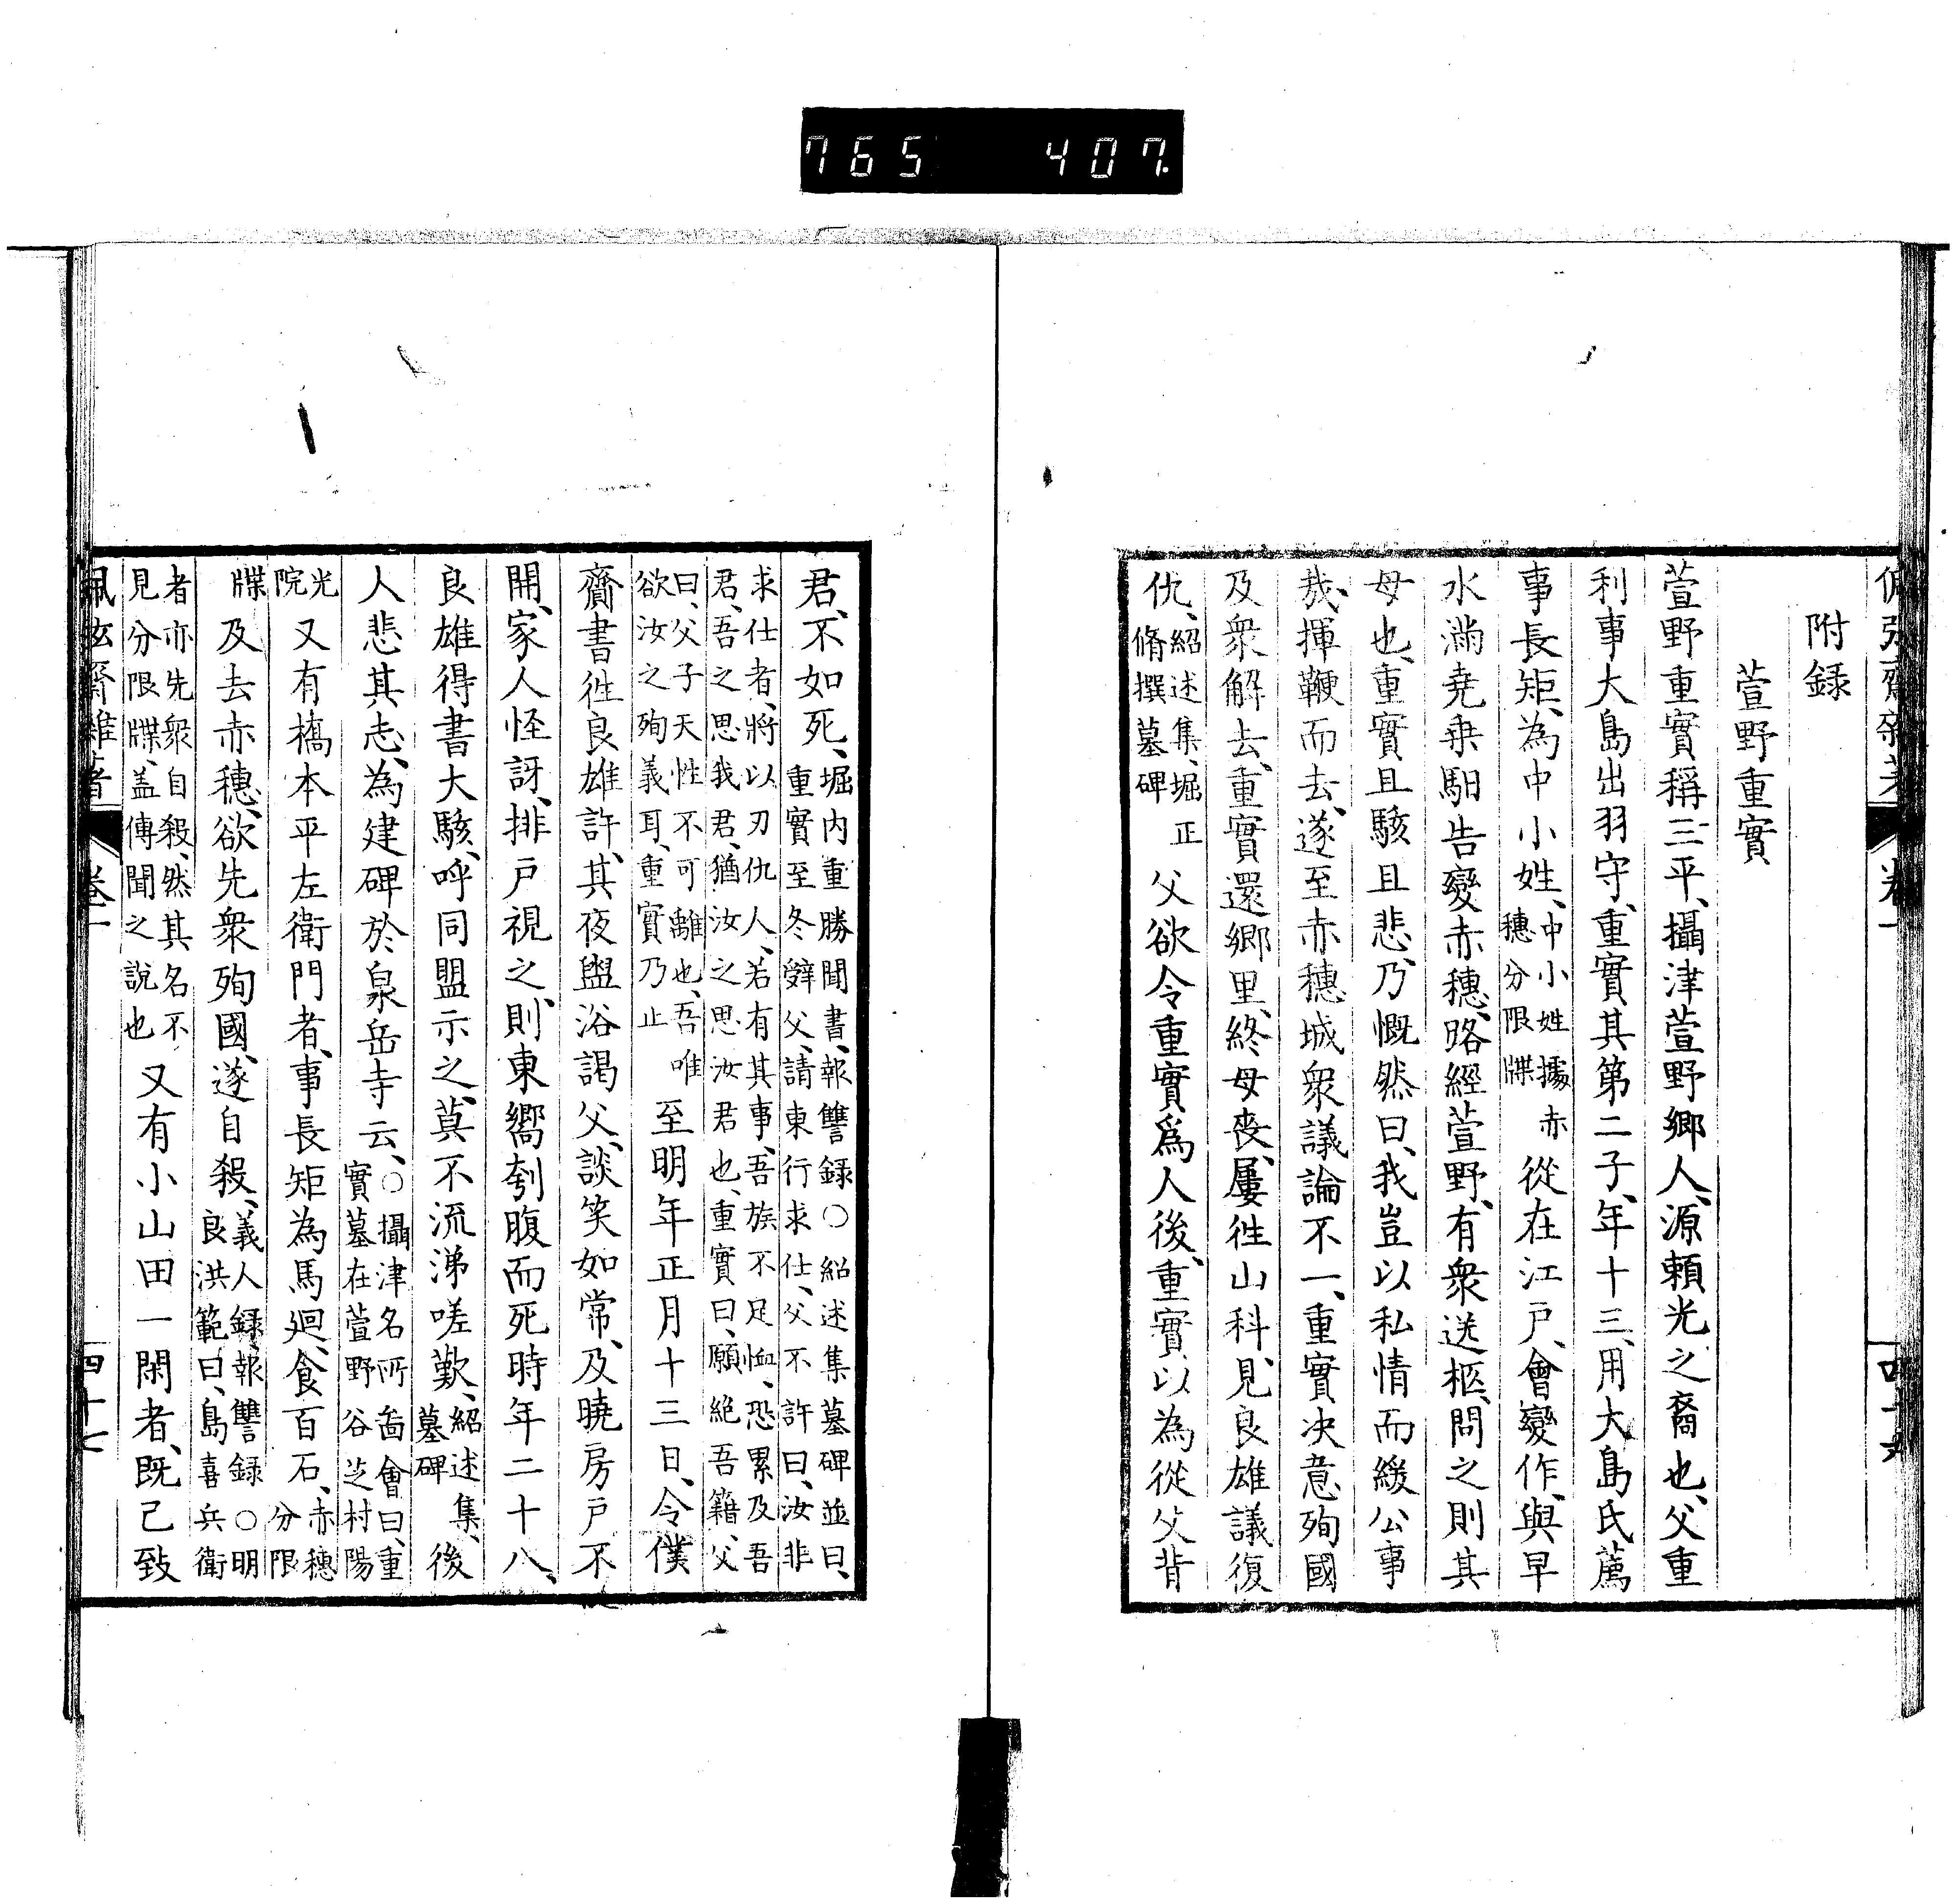 765 407.
附録
萱野重實
萱野重實稱三平、攝津萱野鄉人、源賴光之裔也、父重
利事大島出羽守、重實其第二子、年十三、用大島氏薦
事長矩、為中小姓、中小姓據赤穗分限牒 從在江戸、會變作、與早
水滿堯乗馹告變赤穗、路經萱野、有衆送柩、問之則其
母也、重實且駭且悲、乃慨然曰、我豈以私情而緩公事
哉、揮鞭而去、遂至赤穗城衆議論不一、重實決意殉國
及衆解去、重實還鄉里、終母喪、屢徃山科見良雄議復
仇、紹述集、堀正脩撰墓碑 父欲令重實爲人後、重實以為從父背
君、不如死、堀内重勝聞書、報讐録○紹述集墓碑並曰、重實至冬辤父、請東行求仕、父不許曰、汝非
求仕者、將以刃仇人、若有其事、吾族不足恤、恐累及吾君、吾之思我君、猶汝之思汝君也、重實曰、願絶吾籍、父
曰、父子天性不可離也、吾唯欲汝之殉義耳、重實乃止 至明年正月十三日、令僕
齎書徃良雄許、其夜盥浴謁父、談笑如常、及曉房戸不
開、家人怪訝、排戸視之、則東嚮刳腹而死時年二十八、
良雄得書大駭、呼同盟示之、莫不流涕嗟歎、紹述集、墓碑 後
人悲其志、為建碑於泉岳寺云、○攝津名所啚會曰、重實墓在萱野谷芝村陽
光院 又有橋本平左衛門者、事長矩為馬廻、食百石、赤穗分限
牒 及去赤穗、欲先衆殉國、遂自殺、義人録、報讐録○明良洪範曰、島喜兵衛
者亦先衆自殺、然其名不見分限牒、盖傳聞之說也 又有小山田一閑者、既已致
佩弦齋雜著 卷一 四十七